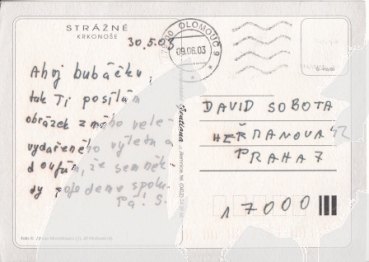 STRÁŽNÉ
KRKONOŠE
30.5.03
OLOMOUC 9
09.06.03
Ahoj bubáčku,
tak Ti posílám
obrázek z mého vele-
vydařeného výletu a
doufám, že sem někdy
pojedeme spolu.
Pa! S.
Gentiana
DAVID SOBOTA
HEŘMANOVA
PRAHA 7
17000